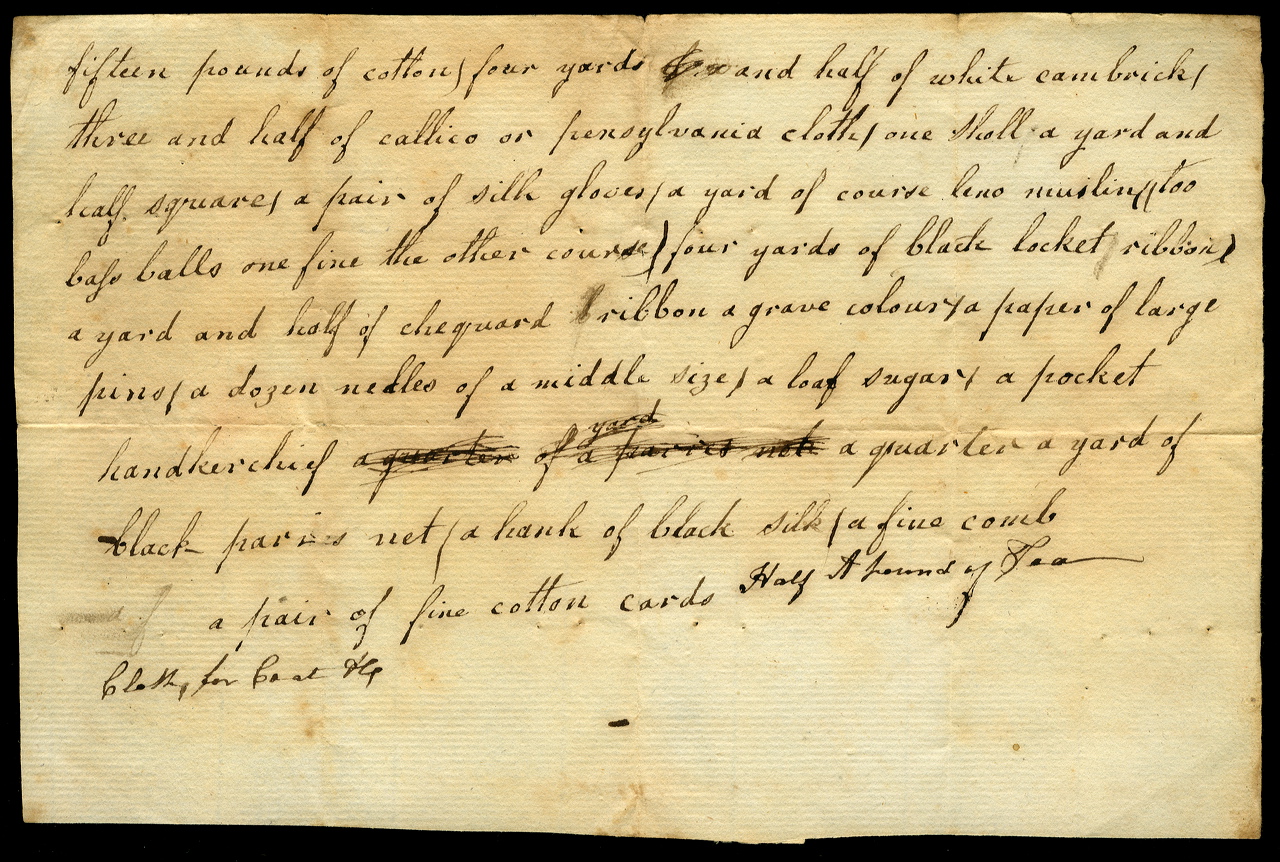 fifteen pounds of cotton/ four yards and half of white cambrick/
three and half of callico or pensylvania cloth/ one sholl a yard and
half square/ a pair of silk gloves/ a yard of course leno muslin/ too
bass balls one fine the other course/ four yards of black locket ribbon/
a yard and half of chequard ribbon a grave colour/ a paper of large
pins/ a dozen nedles of a middle size/ a loaf sugar/ a pocket
yard
handkerchief a quarter of a parris net a quarter a yard of
black parris net/ a hank of black silk/ a fine comb
a pair of fine cotton cards Half A pound of Tea
Cloth, for Coat &c